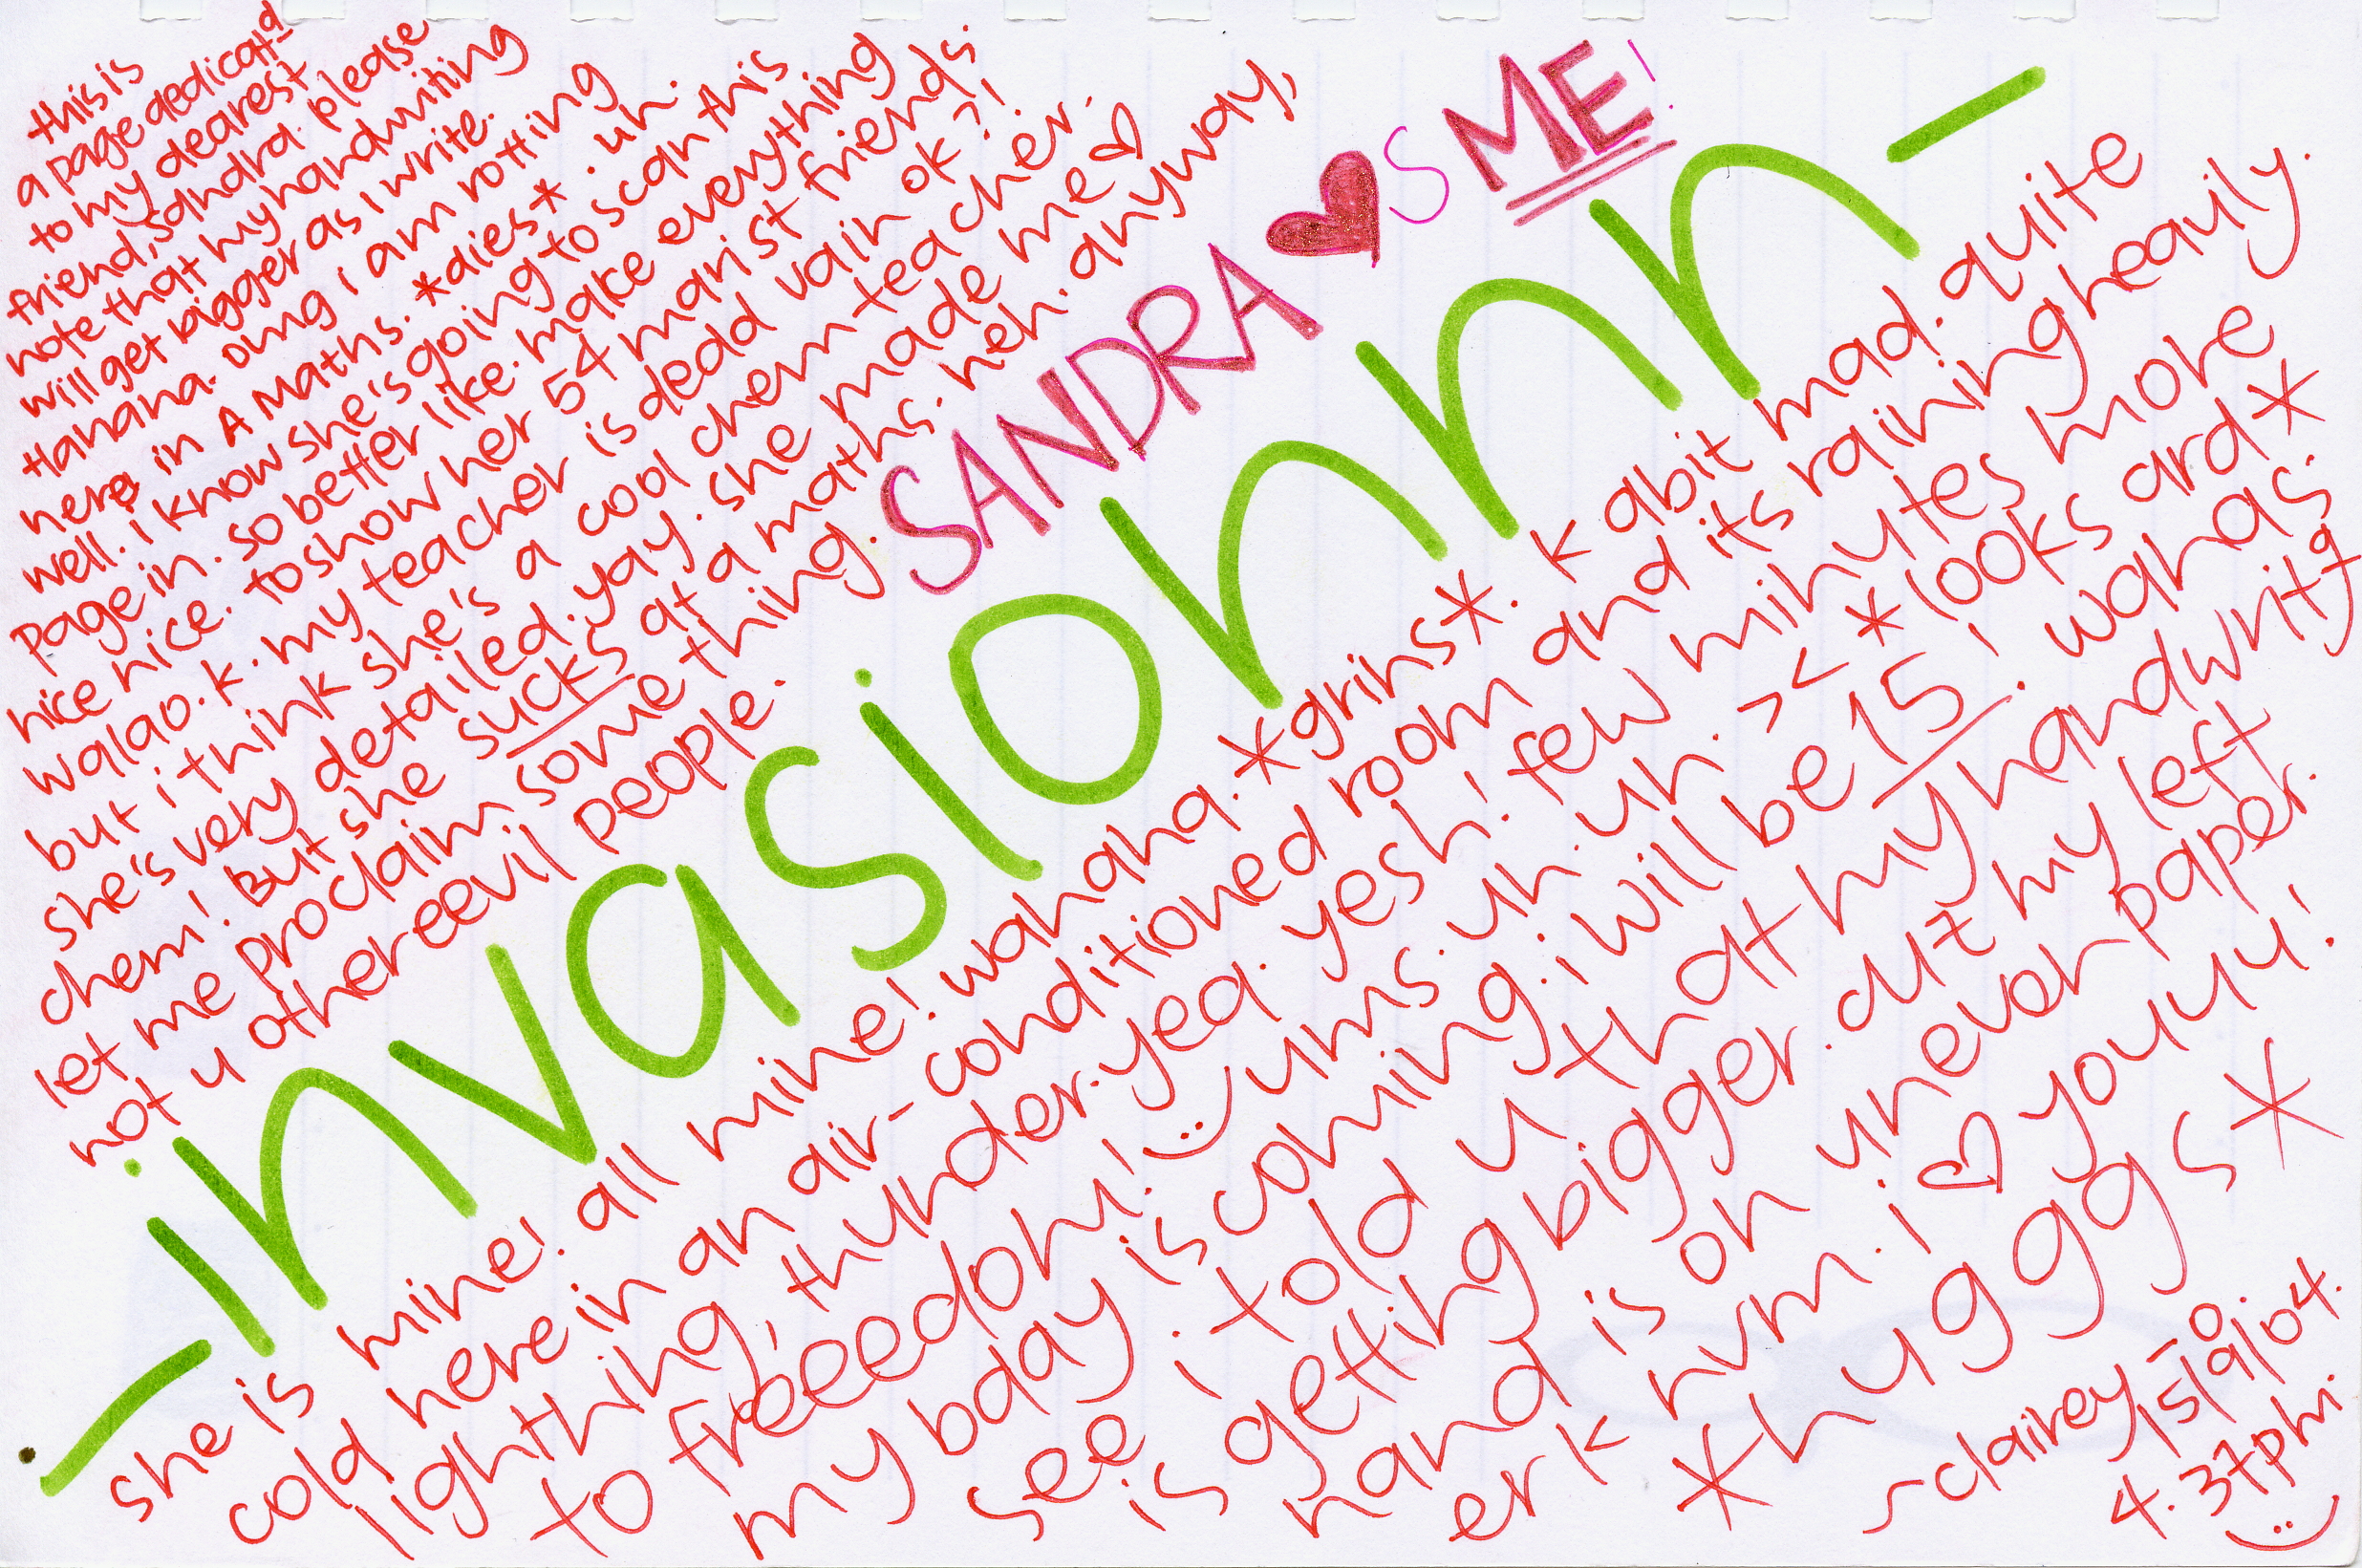 this is
a page dedicatd
to my dearest
friend, sandra. please
note that my handwriting
will get bigger as i write.
Hahaha. omg i am rotting
here in A Maths. *dies*. uh.
well. i know she's going to scan this
page in. so better like. make everything
nice nice. to show her 54 marist friends.
walao. k. my teacher is dedd vain ok?!
but i think she's a cool chem teacher.
she's very detailed. yay. she made me ♡
chem! But she sucks at a maths. heh. anyway,
let me proclaim something.
not u other eevil people.
SANDRA ♥s ME!
-invasionnnn-
she is mine! all mine! wahaha. *grins*. k abit mad. quite
cold here in an air-conditioned room and its raining heavily.
lightning, thunder. yea. yesh! few minutes more
to freeedom! :) ums. uh. uh. >< *looks ard*
my bday is coming. i will be 15! wahas.
see. i told u that my handwritg
is getting bigger. cuz my left
hand is on uneven paper.
erk hvm. i ♡ youuu!
*huggs*
~clairey -o.
15/9/04.
4.37pm.
:)